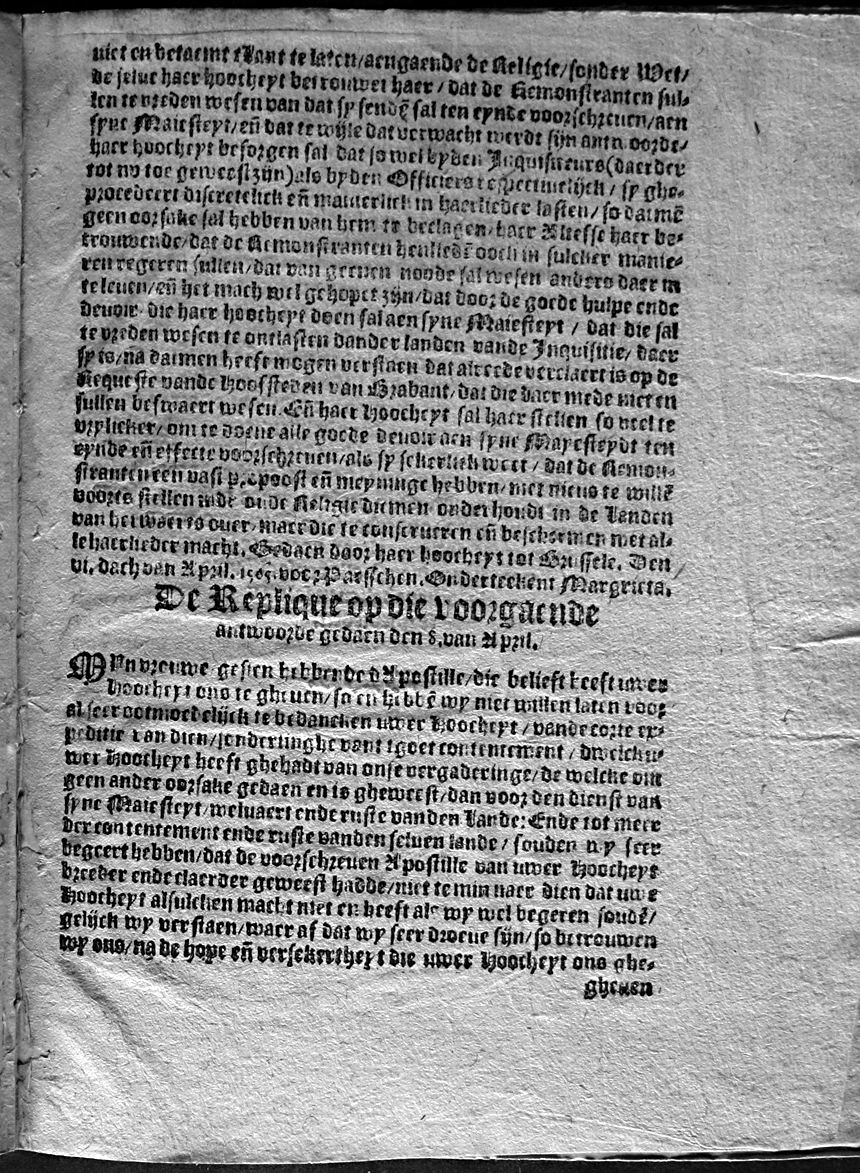 niet en betaemt tLant te laten/aengaende de Religie/sonder Wet/
de selue haer hoocheyt betrouwet haer/dat de Remonstranten sul-
len te vreden wesen van dat sy sendẽ sal ten eynde voorschreuen/aen
syne Maiesteyt/eñ dat te wijle dat verwacht werdt sijn antwoorde/
haer hoocheyt besorgen sal dat so wel by den Inquisiteurs (daer der
tot nv toe geweest zijn) als by den Officiers respectiuelijck/sy ghe-
procedeert discretelick eñ manierlick in haerlieder lasten/so datmẽ
geen oorsake sal hebben van hem te beclagen/haer Altesse haer be-
trouwende/dat de Remonstranten henliedẽ oock in sulcker manie-
ren regeren sullen/dat van geenen noode sal wesen anders daer in
te leuen/eñ het mach wel gehopet zijn/dat door de goede hulpe ende
devoir die haer hoocheyt doen sal aen syne Maiesteyt/dat die sal
te vreden wesen te ontlasten dander landen vande Inquisitie/daer
sy is/na datmen heeft mogen verstaen dat alreede verclaert is op de
Requeste vande hoofsteden van Brabant/dat die daer mede niet en
sullen beswaert wesen. Eñ haer hoocheyt sal haer stellen so veel te
vrylicker/om te doene alle goede devoir aen syne Mayesteydt ten
eynde eñ effecte voorschreuen/als sy sekerlick weet/dat de Remon-
stranten een vast propoost eñ meyninge hebben/niet nieus te willẽ
voorts stellen inde oude Religie diemen onderhoudt in de Landen
van herwaerts ouer/maer die te conserueren eñ beschermen met al-
le haerlieder macht. Gedaen door haer hoocheyt tot Brussele. Den
vi. dach van April. 1565. voor Paesschen. Onderteekent Margrieta.
De Replique op die voorgaende
antwoorde gedaen den 8. van April.
MYn vrouwe gesien hebbende dApostille/die belieft heeft uwer
hoocheyt ons te gheuen/so en hebbẽ wy niet willen laten voor
al seer ootmoedelijck te bedancken uwer Hoocheyt/vande corte ex-
peditie van dien/sonderlinghe vant tgoet contentement/dwelck u-
wer Hoocheyt heeft ghehadt van onse vergaderinge/de welcke om
geen ander oorsake gedaen en is gheweest/dan voor den dienst van
syne Maiesteyt/weluaert ende ruste vanden Lande: Ende tot meer
der contentement ende ruste vanden seluen lande/souden wy seer
begeert hebben/dat de voorschreuen Apostille van uwer Hoocheyt
breeder ende claerder geweest hadde/niet te min naer dien dat uwe
Hoocheyt alsulcken macht niet en heeft als wy wel begeren soudẽ/
gelijck wy verstaen/waer af dat wy seer droeue sijn/so betrouwen
wy ons/na de hope eñ versekertheyt die uwer Hoocheyt ons ghe-
gheuen